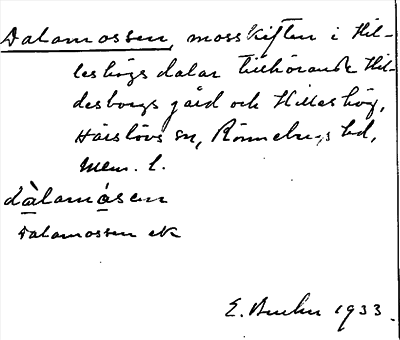 Dalamossen, mosskiften i Hil-
leshögs dalar tillhörande Hil-
desborgs gård och Hilleshög,
Härslövs sn, Rönnebergs hd,
Mem. l.
dàlamósen
Dalamossen ek
E. 1933.